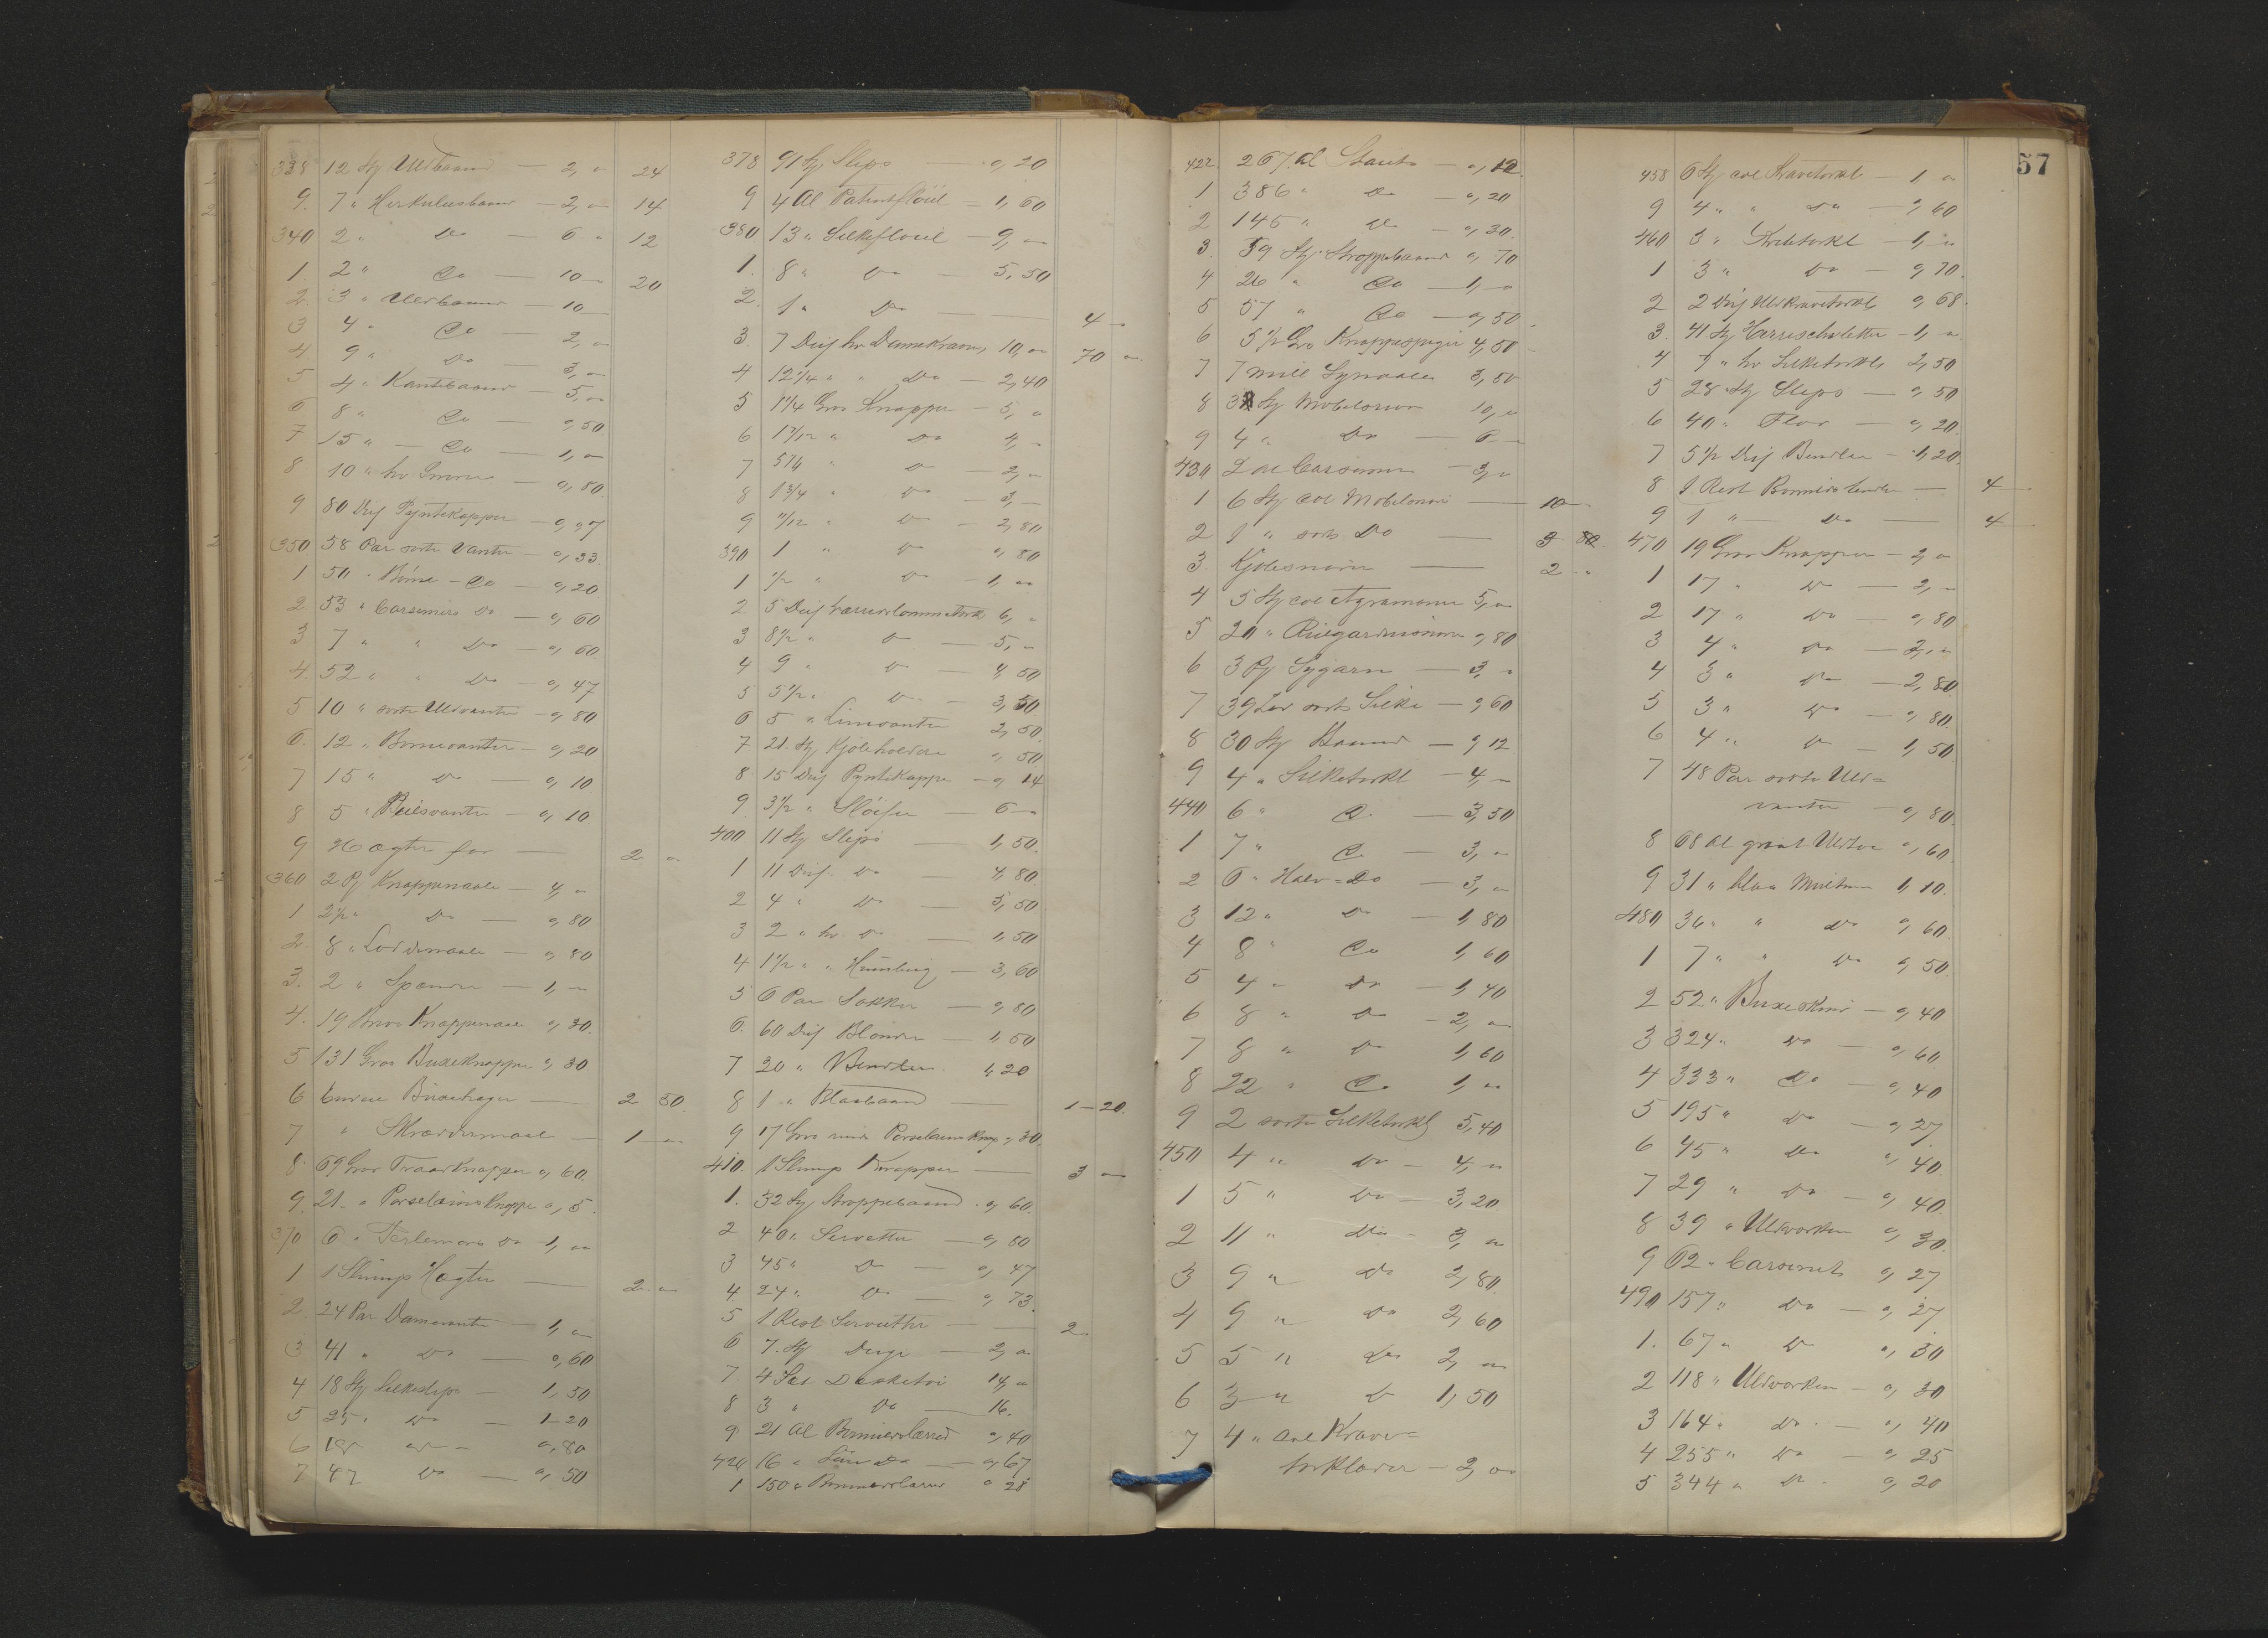 338 12 Stj Uldbaand — 2, " 24
9. 7 " Herkulesbaand — 2, " 14
340 2 " Do — 6 " 12
1. 2 " Do — 10 — 20
2. 3 " Uldbaand — 10
3 4 " Do — 2, "
4. 9 " Do — 3, "
5 4 " Kantebaand — 5, "
6 8 " Do — ", 50
7 15 " — Do — 1, "
8 10 " hv Snore — ", 80
9 80 Dus Pyntekapper — ", 97
350 58 Par sorte Vanter — ", 33
1 50 " Börne - Do — ", 20
2. 53 " Carsimirs Do — ", 60
3 7 " " Do — ", 60
4. 52 " " Do — ", 47
5 10 " sorte Uldvanter — ", 80
6. 12 " Bornevanter — ", 20
7 15 " Do — ", 10
8 5 " vanter — ", 10
9 Hægter for — 2 "
360 2 Pj Knappenaale — 4, "
1 2½ " Do — ", 80
2. 8 " naale — ", 80
3. 2 " Spænder — 1, "
4. 19 Knappenaale ", 30.
5 131 Gros Buxeknapper ", 30
6 Buxehager — 2 50.
7 " Skrædermaal — 1 "
8. 69 Gros Traadknapper ", 60.
9. 21 " Porselæns Knapper ", 5.
370 6 " Perlemors Do 1, "
1 1 Slump Hægter — 2 "
2. 24 Par Damevanter — 1, "
3 41 " Do — ", 60
4 18 Stj Silkeslips — 1, 50
5 25 " Do — 1-20
6 Do — ", 80
7 47 Do — ", 50
378 91 Stj Slips — ", 20
9 4 Al Patentfløiel — 1, 60
380 13 " Silkefloiel — 9, "
1. 8 " Do — 5, 50
2. 1 " Do — 4 "
3. 7 Dus hv 10, " 70 "
4 12¼ " " Do — 2, 40
5 1¼ Gros Knapper — 5, "
6 " Do 4, "
7 " Do — 2, "
8 1¾ " Do — 3, "
9 11/12 " Do — 2, 80
390 1 " Do ", 80
1 ½ " Do — 1, "
2 5 Dus 6, "
3 8½ " Do — 5, "
4 9 " Do — 4, 50
5 5½ " Do — 3, 50
6 5 " vanter 2, 50
7. 21. Stj Kjoleholdere ", 50
8 15 Dus Pyntekapper — ", 14
9 3½ " Sløifer — 6 "
400. 11 Stj Slips — 1, 50
1 11 Dus. Do — 4, 80
2 4 " Do — 5, 50
3 2 " hv Do — 1, 50
4 1½ " " — 3, 60
5 6 Par Sokker — ", 80
6. 60 Dus Blonder — 1, 50
7 20 " Bendler 1, 20
8 1 " — 1-20.
9 17 Gros Porselæns Knap. ", 30.
410. 1 Slump Knapper — 3 "
1. 32 Stj Stroppebaand ", 60.
2 40 " Servetter — ", 80
3 45 " Do — ", 47
4 24 " Do — ", 73.
5 1 Rest Servietter — 2.
6 7. Stj Duge — 2, "
7. 4 Sæt Dækketoi 14, "
8 3 " Do — 16.
9 21 Al Bomuldslærred ", 40
420 16 " Do — ", 67
1 150 " Bomuldslærred ", 28
422. 267. Al — ", 12.
1 386 " Do — ", 20
2 145 " Do — ", 30.
3. 59 Stj. Stroppebaand ", 70
4 26 " Do — 1, "
5 57 " Do — ", 50
6 5½ Gro Knappespiger 4, 50
7 7 mill Synaale 3, 50
8 Stj Mobelsnor 10, "
9 4 " Do — 6 "
430 — 3, "
1 6 Stj col Mobelsnor — 10 —
2 1 " sort Do — 3 80.
3. Kjolesnorer — 2 "
4 5 Stj col Agramaner 5, "
5 20 " ", 80
6 3 Pj Sygarn — 3, "
7 39 Lod sort Silke — ", 60
8 30 Stj Baand — ", 12
9 4 " Silketorkl — 4, "
440 6 " Do — 3, 50
1 7 " Do — 3, "
2 6 " Halv = Do — 3, "
3 12 " Do — 1, 80
4 8 " Do 1, 60
5 4 " Do — 1, 40
6 8 " Do — 2, "
7 8 " Do 1, 60
8 22 " Do 1, "
9 2 sorte Silketorkl 5, 40
450 4 " Do — 4, "
1 5 " Do — 3, 20
2 11 " Do — 3, "
3 9 " Do 2, 80.
4 9 " Do 2, 60
5 5 " Do 2, "
6 3 " Do 1, 50
7 4 " col Krave=
torklæder — 2, "
57
458 6 Stj col Kravetorkl — 1, "
9 4 " " Do — ", 60
460 3 " torkl — 1, "
1 3 " Do — ", 70.
2 2 Dus Uldkravetorkl ", 68.
3. 41 Stj — 1, "
4 7 " hv Silketorkl 2, 50
5 28 Stj Slips — ", 50
6 40 " Flor — ", 20.
7 5½ Dus Bendler — 1, 20
8 1 Rest Bomulds — 4
9 1 " Do — 4
470 19 Gros Knapper — 2, "
1 17 " Do — 2, "
2 17 " Do — ", 80
3 4 " Do — 2, "
4 3 " Do — 2, 80
5 3 " Do — ", 80.
6 4 " Do — 1, 50
7 48 Par sorte Uld=
vanter — ", 80.
8 68 Al graat Uldtoi ", 60.
9 31 " blaa 1, 10.
480 36 " " Do ", 60
1 7 " " Do ", 50.
2 52 " Buxeskind — ", 40
3 324 " Do — ", 60
4 333 " Do — ", 40
5 195 " Do — ", 27
6 45 " Do ", 40.
7 29 " Do — ", 40.
8 39 " Uldvorken ", 30.
9 62 " ", 27
490 157 " Do — ", 27
1. 67 " Do ", 30
2 118 " Uldvorken — ", 30
3 164 " Do — ", 40
4 255 " Do — ", 25
5 344 " Do ", 20